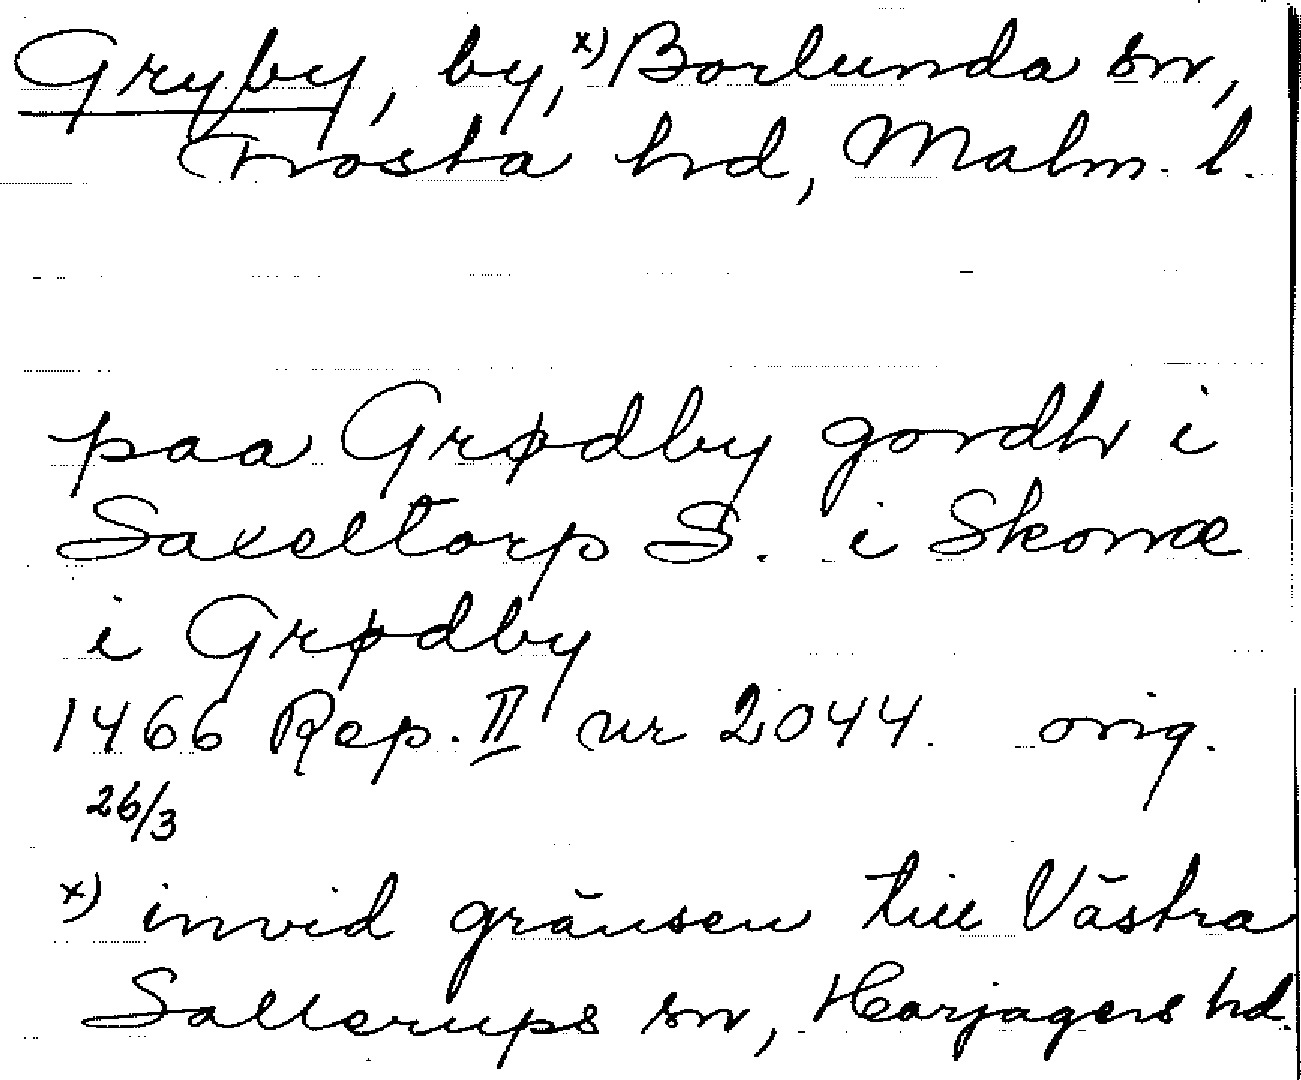 Gryby, by,x) Borlunda sn,
Frosta hd, Malm. l.
paa Grødby gordh i
Saxeltorp S. i Skonæ
i Grødby
1466 Rep. II nr 2044. orig.
26/3
x) invid gränsen till Västra
Sallerups sn, Harjagers hd.